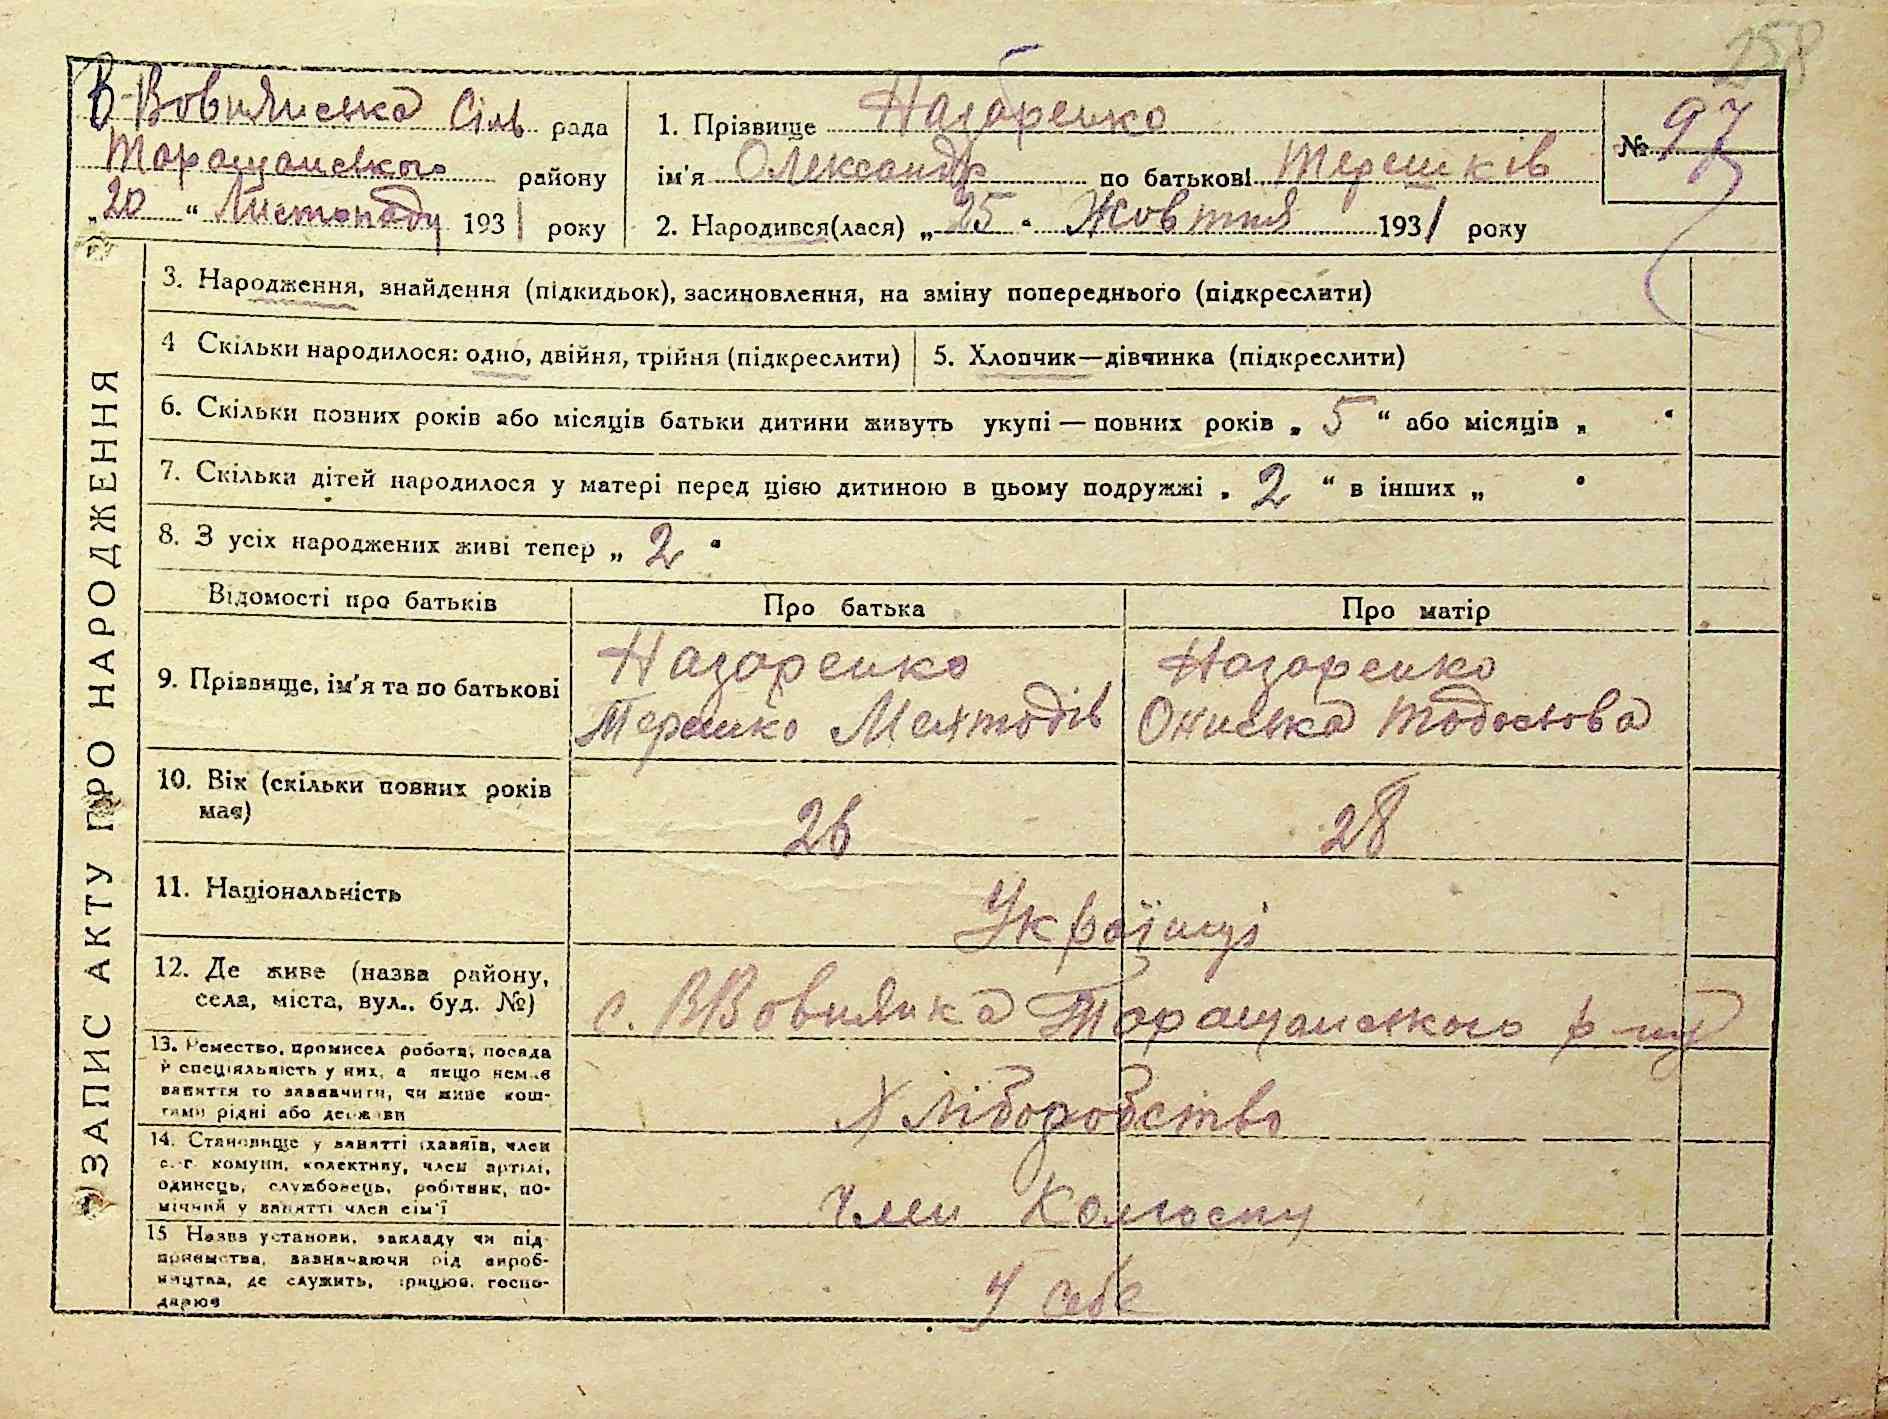 258
В-Вовнянська Сіль рада
Таращанського району
„20“ Листопаду 1931 року
1. Прізвище Назаренко
ім'я Олександр по батькові Терешків
2. Народився(лася) „25“ Жовтня 1931 року
№ 97
ЗАПИС АКТУ ПРО НАРОДЖЕННЯ
3. Народження, знайдення (підкидьок), засиновлення, на зміну попереднього (підкреслити)
4 Скільки народилося: одно, двійня, трійня (підкреслити)
5. Хлопчик—дівчинка (підкреслити)
6. Скільки повних років або місяців батьки дитини живуть укупі — повних років „ 5 “ або місяців „ “
7. Скільки дітей народилося у матері перед цією дитиною в цьому подружжі „ 2 “ в інших „ “
8. З усіх народжених живі тепер „ 2 “
Відомості про батьків
Про батька
Про матір
9. Прізвище, ім'я та по батькові
Назаренко
Терешко Мептодів
Назаренко
Ониська Тодосьова
10. Вік (скільки повних років
має)
26
28
11. Національність
Українці
12. Де живе (назва району,
села, міста, вул., буд. №)
с. ВВовнянка Таращанського р-ну
13. Ремество, промисел робота, посада
й спеціяльність у них, а якщо немає
заняття то зазначити, чи живе кош-
тами рідні або держави
Хліборобство
14. Становище у занятті (хазяїн, член
с.-г. комуни, колективу, член артілі,
одинець, службовець, робітник, по-
мічний у занятті член сім'ї
Член Колгоспу
15 Назва установи, закладу чи під-
приємства, зазначаючи рід вироб-
ництва, де служить, працює, госпо-
дарює
У себе